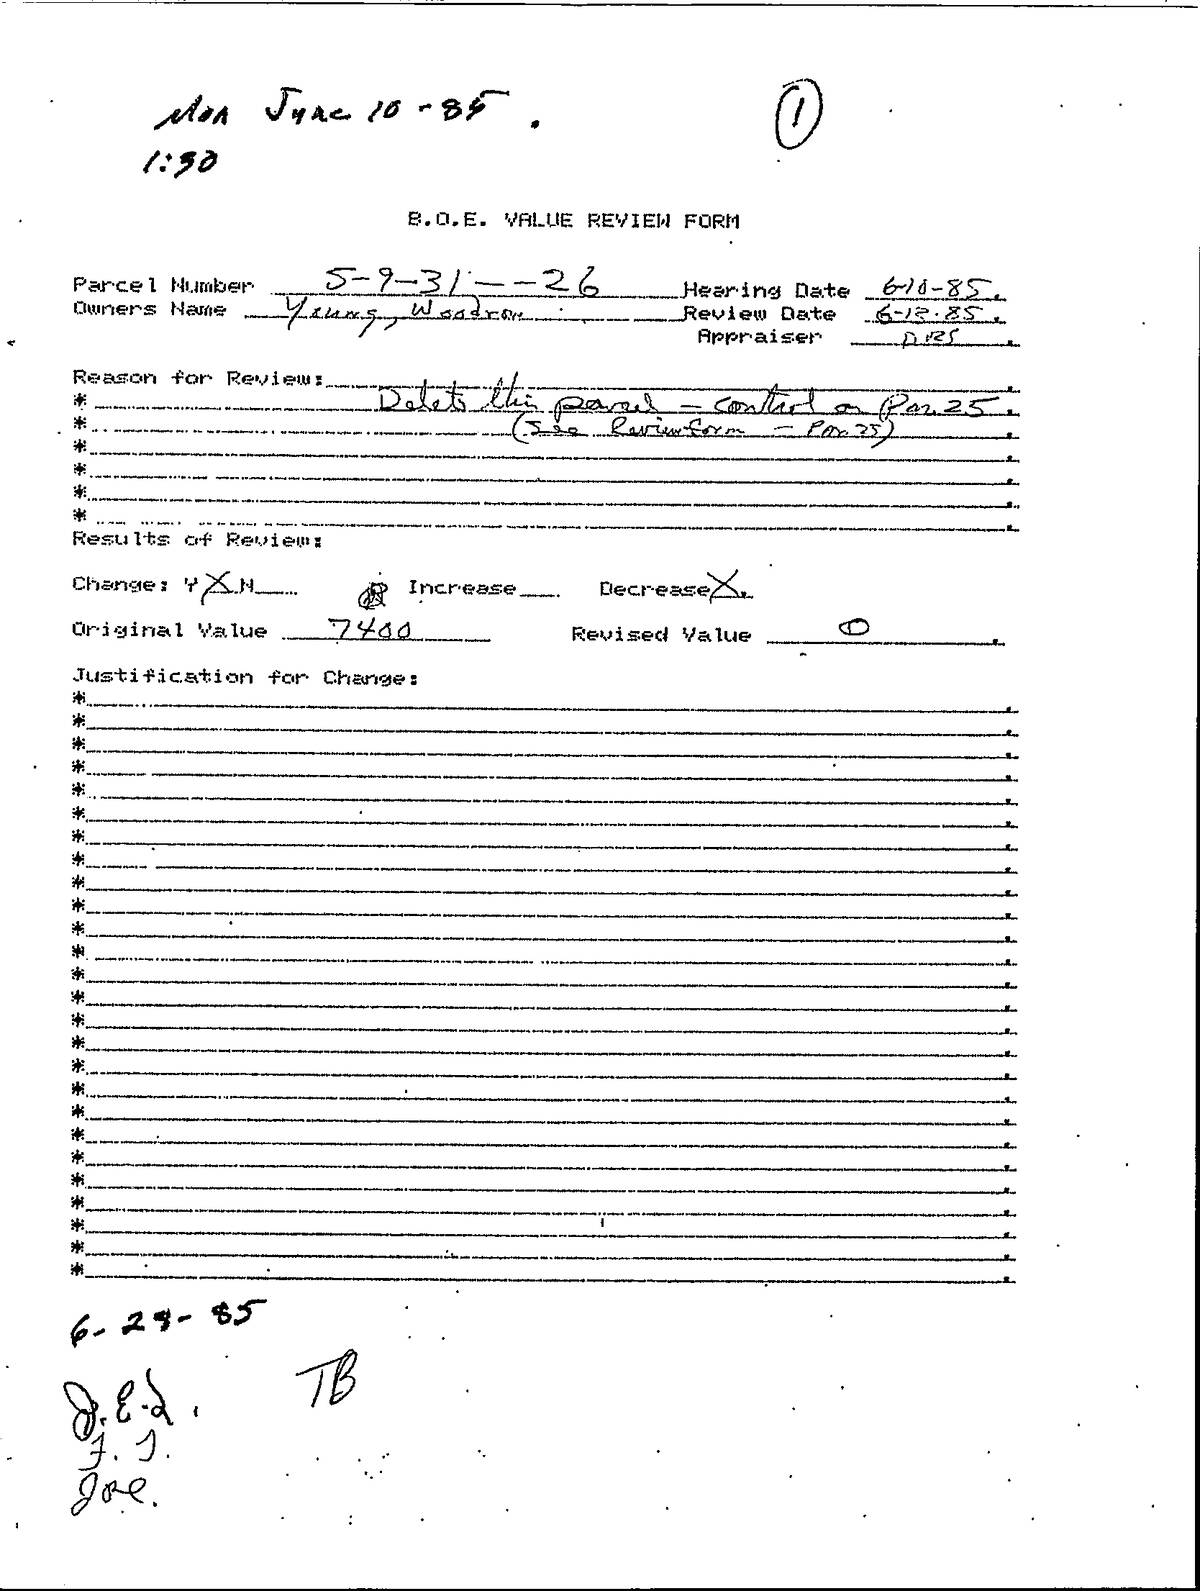 Mon June 10-85.
1:30
1
B.O.E. VALUE REVIEW FORM
Parcel Number 5-9-31---26 Hearing Date 6-10-85.
Owners Name Young, Woodrow Review Date 6-12-85.
Appraiser DRS
Reason for Review:
* Delete this parcel - control on Par. 25
* (See Review form - Par. 25)
*
*
*
*
Results of Review:
Change: Y X N Increase Decrease X.
Original Value 7400 Revised Value 0
Justification for Change:
*
*
*
*
*
*
*
*
*
*
*
*
*
*
*
*
*
*
*
*
*
*
*
*
*
*
6-28-85
TB
J.E.L.
F. J.
Joe.